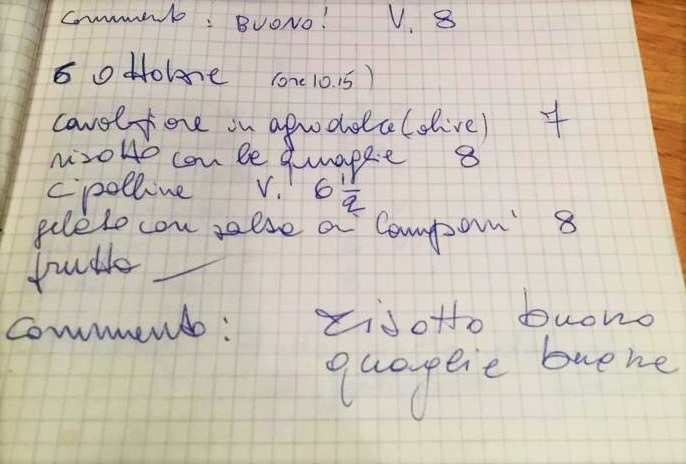 Commento : BUONO! V. 8
6 Ottobre (ore 10.15)
cavolfiore in agrodolce (olive) 7
risotto con le quaglie 8
cipolline V. 6 1/2
gelato con salsa ai lamponi 8
frutta —
Commento : risotto buono
quaglie buone